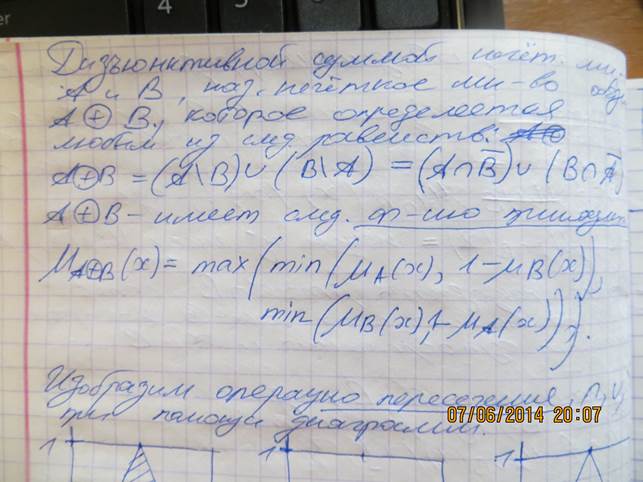 Дизъюнктивной суммой нечёт. мн.
A и B, наз. нечёткое мн-во
A ⊕ B, которое определяется
любым из след. равенств:
A⊕B = (A \ B) ∪ (B \ A) = (A ∩ B̅) ∪ (B ∩ A̅)
A⊕B - имеет след. ф-цию принадл.
μ_{A⊕B}(x) = max{min{μ_A(x), 1 - μ_B(x)},
min{μ_B(x), 1 - μ_A(x)}}.
Изобразим операцию пересечения, ∩, ∪,
при помощи диаграмм.
07/06/2014 20:07
1 1 1
4 5 6